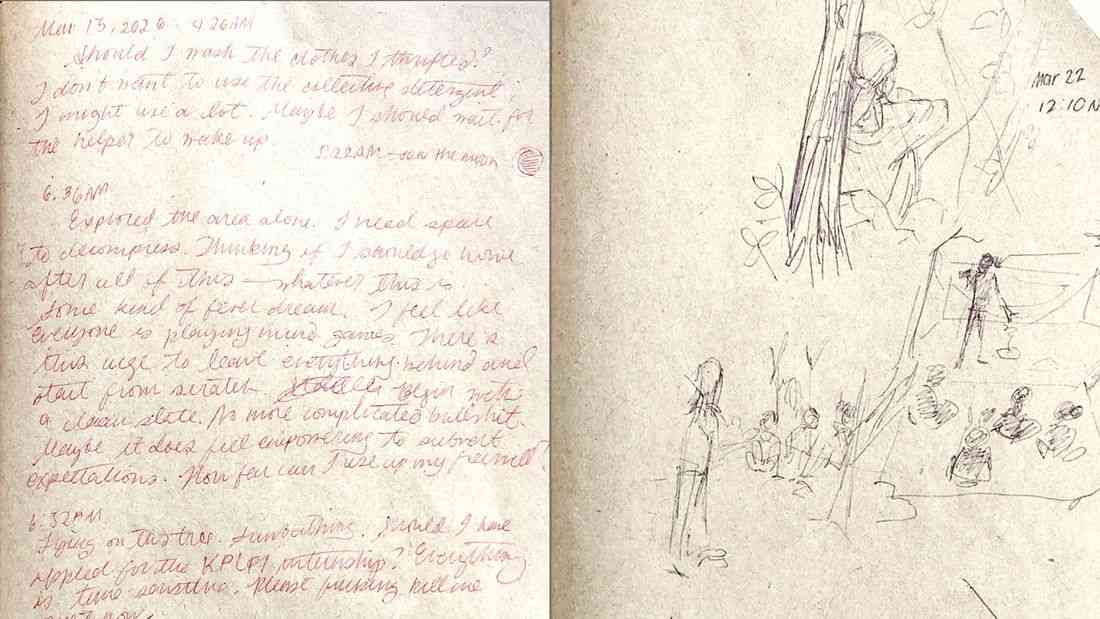 Mar 13, 2026 - 4:26AM
Should I wash the clothes I thrifted?
I don't want to use the collective detergent,
I might use a lot. Maybe I should wait for
the helper to wake up.
5:22AM - saw the moon
6:36AM
Explored the area alone. I need space
to decompress. Thinking if I should go home
after all of this — whatever this is
some kind of fever dream. I feel like
everyone is playing mind games. There's
this urge to leave everything behind and
start from scratch. Begin with
a clean slate. No more complicated bullshit.
Maybe it does feel empowering to subvert
expectations. How far can I use up my freewill
6:52AM
Lying on. Sunbathing. Should I have
applied for the internship? Everything
is time sensitive. Please fucking kill me
Mar 22
12:10